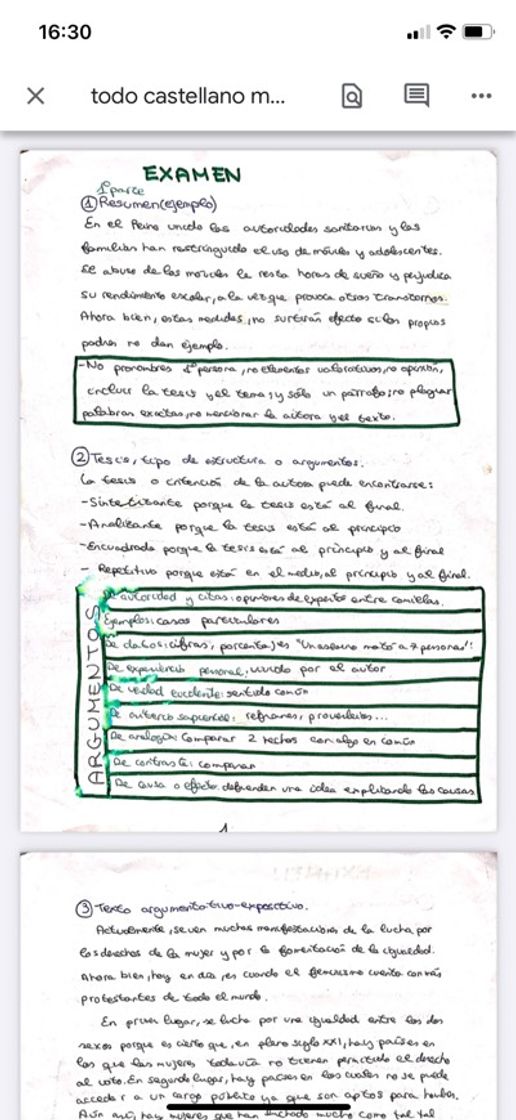 16:30
todo castellano m...
EXAMEN
1ª parte
① Resumen (ejemplo)
En el Reino unido las autoridades sanitarias y las
familias han restringuido el uso de móviles y adolescentes.
El abuso de los moviles le resta horas de sueño y perjudica
su rendimiento escolar, a la vez que provoca otros transtornos.
Ahora bien, estas medidas, no surtirán efecto si los propios
padres no dan ejemplo.
-No pronombres 1ª persona, no elementos valorativos, no opinión,
incluir la tesis y el tema, y sólo un párrafo, no plagiar
palabras exactas, no mencionar la autora y el texto.
② Tesis, tipo de estructura o argumentos.
La tesis o intención de la autora puede encontrarse:
-Sintetizante porque la tesis está al final.
-Analizante porque la tesis está al principio
-Encuadrada porque la tesis está al principio y al final
- Repetitivo porque está en el medio, al principio y al final.
ARGUMENTOS
De autoridad y citas: opiniones de experto entre comillas.
Ejemplos: casos particulares
De datos: cifras, porcentajes "Un asesino mató a 7 personas":
De experiencia personal: vivido por el autor
De verdad evidente: sentido común
De criterio sapiencial: refranes, proverbios...
De analogía: Comparar 2 hechos con algo en común
De contraste: comparar
De causa o efecto: defienden una idea explicando las causas
1
③ Texto argumentativo-expositivo.
Actualmente, se ven muchas manifestaciones de la lucha por
los derechos de la mujer y por la fomentación de la igualdad.
Ahora bien, hoy en día es cuando el feminismo cuenta con más
protestantes de todo el mundo.
En primer lugar, se lucha por una igualdad entre los dos
sexos porque es cierto que, en pleno siglo XXI, hay países en
los que las mujeres todavía no tienen permitido el derecho
al voto. En segundo lugar, hay países en los cuales no se puede
acceder a un cargo público ya que son aptos para hombres.
Aún así, hay mujeres que han luchado mucho como por